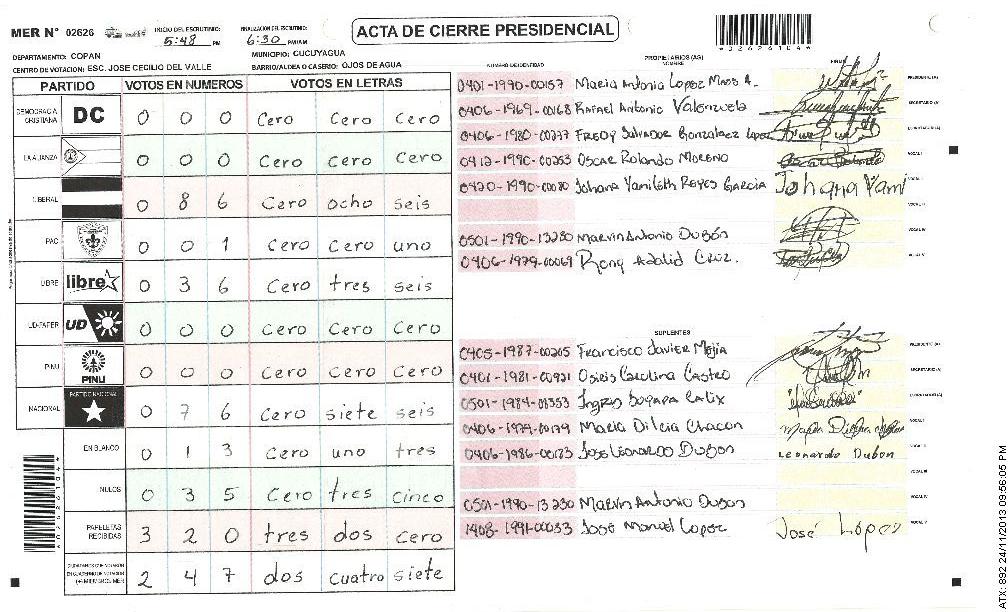 MER N° 02626
INICIO DEL ESCRUTINIO: 5:48 PM
FINALIZACION DEL ESCRUTINIO: 6:30 PM/AM
ACTA DE CIERRE PRESIDENCIAL
DEPARTAMENTO: COPAN
MUNICIPIO: CUCUYAGUA
CENTRO DE VOTACION: ESC. JOSE CECILIO DEL VALLE
BARRIO/ALDEA O CASERIO: OJOS DE AGUA
PARTIDO VOTOS EN NUMEROS VOTOS EN LETRAS
DEMOCRACIA CRISTIANA DC 0 0 0 Cero Cero Cero
LA ALIANZA 0 0 0 Cero Cero Cero
LIBERAL 0 8 6 Cero ocho seis
PAC 0 0 1 Cero Cero uno
LIBRE libre 0 3 6 Cero tres seis
UD-FAPER UD 0 0 0 Cero Cero Cero
PINU PINU 0 0 0 Cero Cero Cero
NACIONAL PARTIDO NACIONAL 0 7 6 Cero siete seis
EN BLANCO 0 1 3 Cero uno tres
NULOS 0 3 5 Cero tres cinco
PAPELETAS RECIBIDAS 3 2 0 tres dos cero
CIUDADANOS QUE VOTARON EN CUADERNO DE VOTACION (+) MIEMBROS MER 2 4 7 dos cuatro siete
PROPIETARIOS (AS)
NUMERO DE IDENTIDAD NOMBRE FIRMA
0401-1990-00157 Maria Antonia Lopez A. PRESIDENTE(A)
0406-1969-00168 Rafael Antonio Valenzuela SECRETARIO(A)
0406-1980-00277 Fredy Salvador Gonzalez Lopez ESCRUTADOR(A)
0412-1990-00253 Oscar Rolando Moreno VOCAL I
0420-1990-00080 Johana Yamileth Reyes Garcia Johana Yami VOCAL II
VOCAL III
0501-1990-13230 Marvin Antonio Dubón VOCAL IV
0406-1979-00069 Rony Adalid Cruz. VOCAL V
SUPLENTES
0405-1987-00205 Francisco Javier Mejia PRESIDENTE (A)
0401-1981-00921 Osiris Carolina Castro SECRETARIO(A)
0501-1984-08353 Ingris Calix ESCRUTADOR(A)
0406-1979-00179 Maria Dilcia Chacon VOCAL I
0406-1986-00173 Jose Leonardo Dubon Leonardo Dubon VOCAL II
VOCAL III
0501-1990-13230 Marvin Antonio Dubon VOCAL IV
1408-1991-00033 José Manuel Lopez José López VOCAL V
ATX: 892 24/11/2013 09:56:05 PM